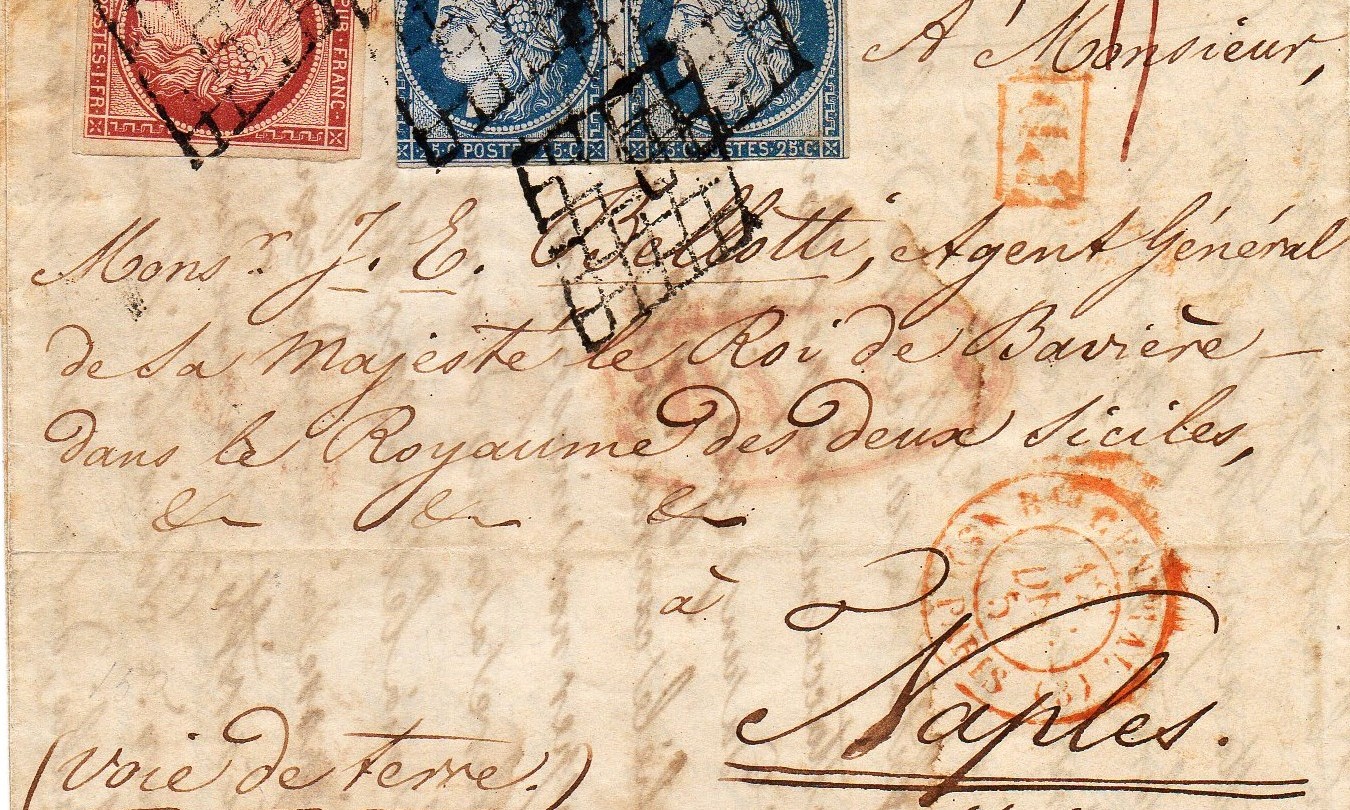 PUB. FRANC.
POSTES.1.FR
25.C POSTES 25.C
POSTES 25.C
A Monsieur,
Mons.r J. E. Bellotti, Agent Général
de Sa Majesté le Roi de Bavière —
dans le Royaume des deux Siciles,
& & &
à
Naples.
(voie de terre.)
PARIS (3)